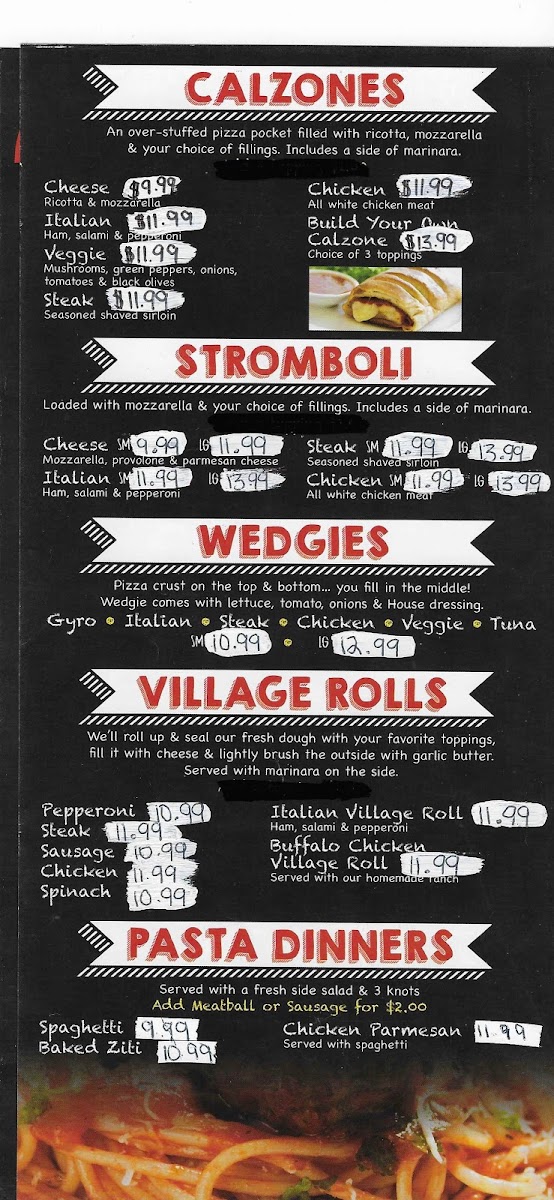 CALZONES
An over-stuffed pizza pocket filled with ricotta, mozzarella
& your choice of fillings. Includes a side of marinara.
Cheese $9.99
Ricotta & mozzarella
Italian $11.99
Ham, salami & pepperoni
Veggie $11.99
Mushrooms, green peppers, onions,
tomatoes & black olives
Steak $11.99
Seasoned shaved sirloin
Chicken $11.99
All white chicken meat
Build Your Own
Calzone $13.99
Choice of 3 toppings
STROMBOLI
Loaded with mozzarella & your choice of fillings. Includes a side of marinara.
Cheese SM 9.99 LG 11.99
Mozzarella, provolone & parmesan cheese
Italian SM 11.99 LG 13.99
Ham, salami & pepperoni
Steak SM 11.99 LG 13.99
Seasoned shaved sirloin
Chicken SM 11.99 LG 13.99
All white chicken meat
WEDGIES
Pizza crust on the top & bottom... you fill in the middle!
Wedgie comes with lettuce, tomato, onions & House dressing.
Gyro • Italian • Steak • Chicken • Veggie • Tuna
SM 10.99 • LG 12.99
VILLAGE ROLLS
We'll roll up & seal our fresh dough with your favorite toppings,
fill it with cheese & lightly brush the outside with garlic butter.
Served with marinara on the side.
Pepperoni 10.99
Steak 11.99
Sausage 10.99
Chicken 11.99
Spinach 10.99
Italian Village Roll 11.99
Ham, salami & pepperoni
Buffalo Chicken
Village Roll 11.99
Served with our homemade ranch
PASTA DINNERS
Served with a fresh side salad & 3 knots
Add Meatball or Sausage for $2.00
Spaghetti 9.99
Baked Ziti 10.99
Chicken Parmesan 11.99
Served with spaghetti